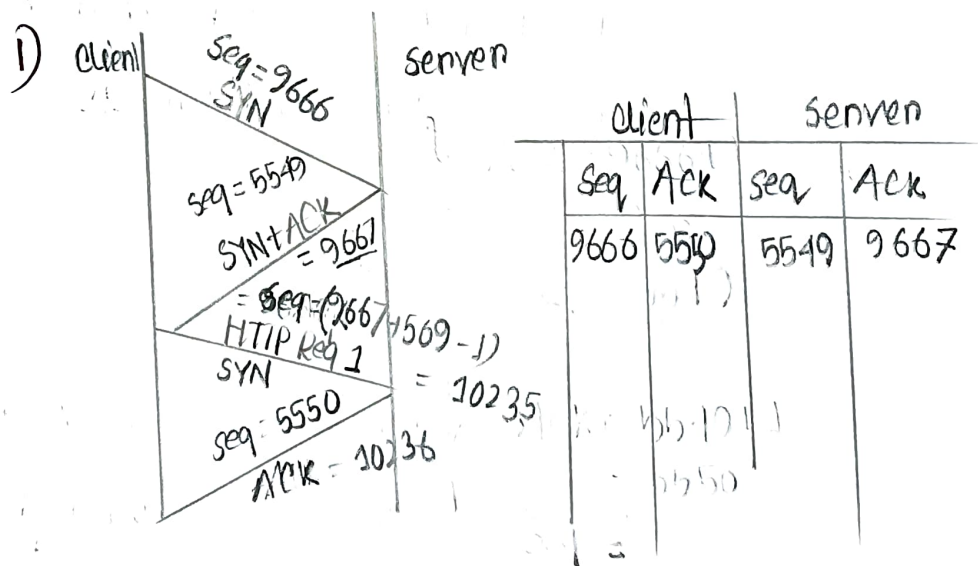 1) Client
Seq=9666
SYN
Server
seq=5549
SYN+ACK
= 9667
= Seq=(9667+569-1)
= 10235
HTTP Req 1
SYN
seq = 5550
ACK = 10236
client Server
Seq ACK seq ACK
9666 5550 5549 9667